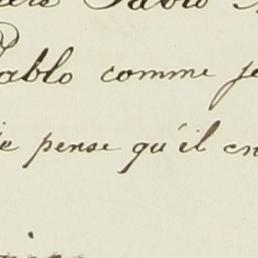 Pablo
Pablo comme je
je pense qu'il en